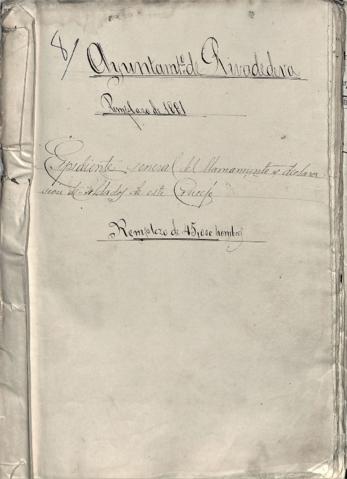 8/
Ayuntamto. de Rivadedeva
Remplazo de 1881
Expediente general del llamamiento y declara
cion de soldados de este Concejo
Remplazo de 45,000 hombs